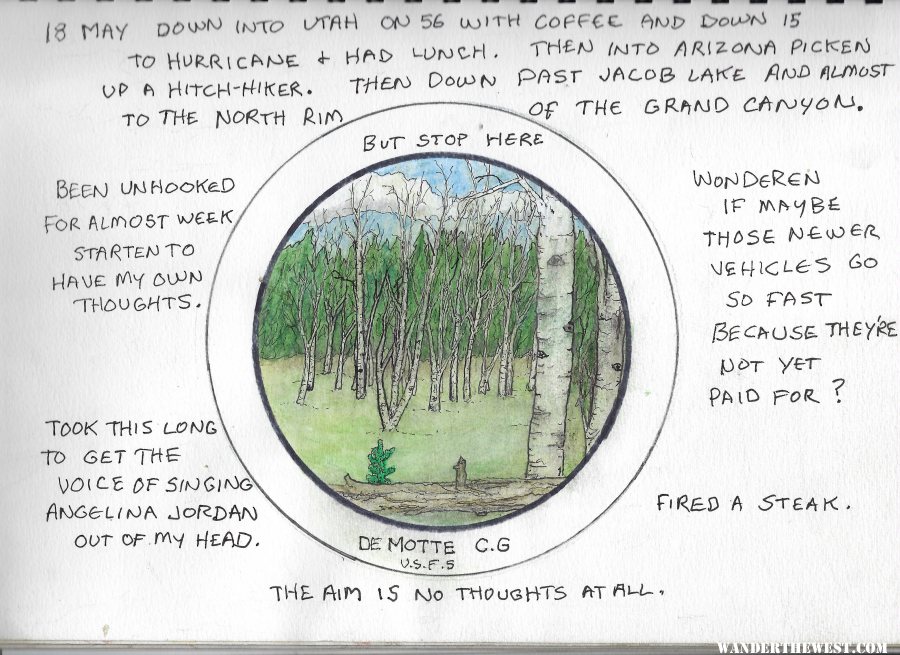 18 MAY DOWN INTO UTAH ON 56 WITH COFFEE AND DOWN 15
TO HURRICANE + HAD LUNCH. THEN INTO ARIZONA PICKEN
UP A HITCH-HIKER. THEN DOWN PAST JACOB LAKE AND ALMOST
TO THE NORTH RIM OF THE GRAND CANYON.
BUT STOP HERE
BEEN UNHOOKED
FOR ALMOST WEEK
STARTEN TO
HAVE MY OWN
THOUGHTS.
TOOK THIS LONG
TO GET THE
VOICE OF SINGING
ANGELINA JORDAN
OUT OF MY HEAD.
WONDEREN
IF MAYBE
THOSE NEWER
VEHICLES GO
SO FAST
BECAUSE THEY'RE
NOT YET
PAID FOR?
FIRED A STEAK.
DE MOTTE C.G
U.S.F.S
THE AIM IS NO THOUGHTS AT ALL.
WANDERTHEWEST.COM